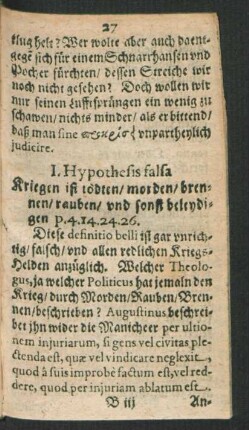 27
klug helt? Wer wolte aber auch daentgegē sich für einem Schnarrhansen vnd
Pocher fürchten/ dessen Streiche wir
noch nicht gesehen? Doch wollen wir
nur seinen Lufftsprüngen ein wenig zu
schawen/ nichts minder/ als er bittend/
daß man sine vnpartheylich
judicire.
I. Hypothesis falsa
Kriegen ist tödten/ morden/ bren-
nen/ rauben/ vnd sonst beleydi-
gen p.4.14.24.26.
Diese definitio belli ist gar vnrich-
tig/ falsch/ vnd allen redlichen Kriegs-
Helden anzüglich. Welcher Theolo-
gus, ja welcher Politicus hat jemaln den
Krieg/ durch Morden/ Rauben/ Bren-
nen/ beschrieben? Augustinus beschrei-
bet ihn wider die Manicheer per ultio-
nem injuriarum, si gens vel civitas ple-
ctenda est, quæ vel vindicare neglexit,
quod à suis improbè factum est, vel red-
dere, quod per injuriam ablatum est.
B iij An-